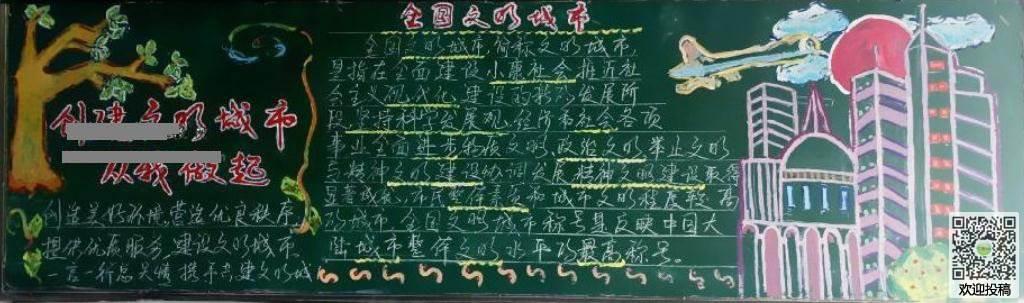 创建文明城市
从我做起
创造美好环境,营造优良秩序
提供优质服务,建设文明城市
一言一行总关情 携手共建文明城
全国文明城市
全国文明城市简称文明城市,
是指在全面建设小康社会 推进社
会主义现代化建设的新的发展阶
段,坚持科学发展观,经济和社会各项
事业全面进步,物质文明,政治文明 举止文明
与精神文明建设协调发展,精神文明建设取得
显著成就,市民 素质和城市文明程度较高
的城市.全国文明城市称号是反映中国大
陆城市整体文明水平的最高称号。
欢迎投稿